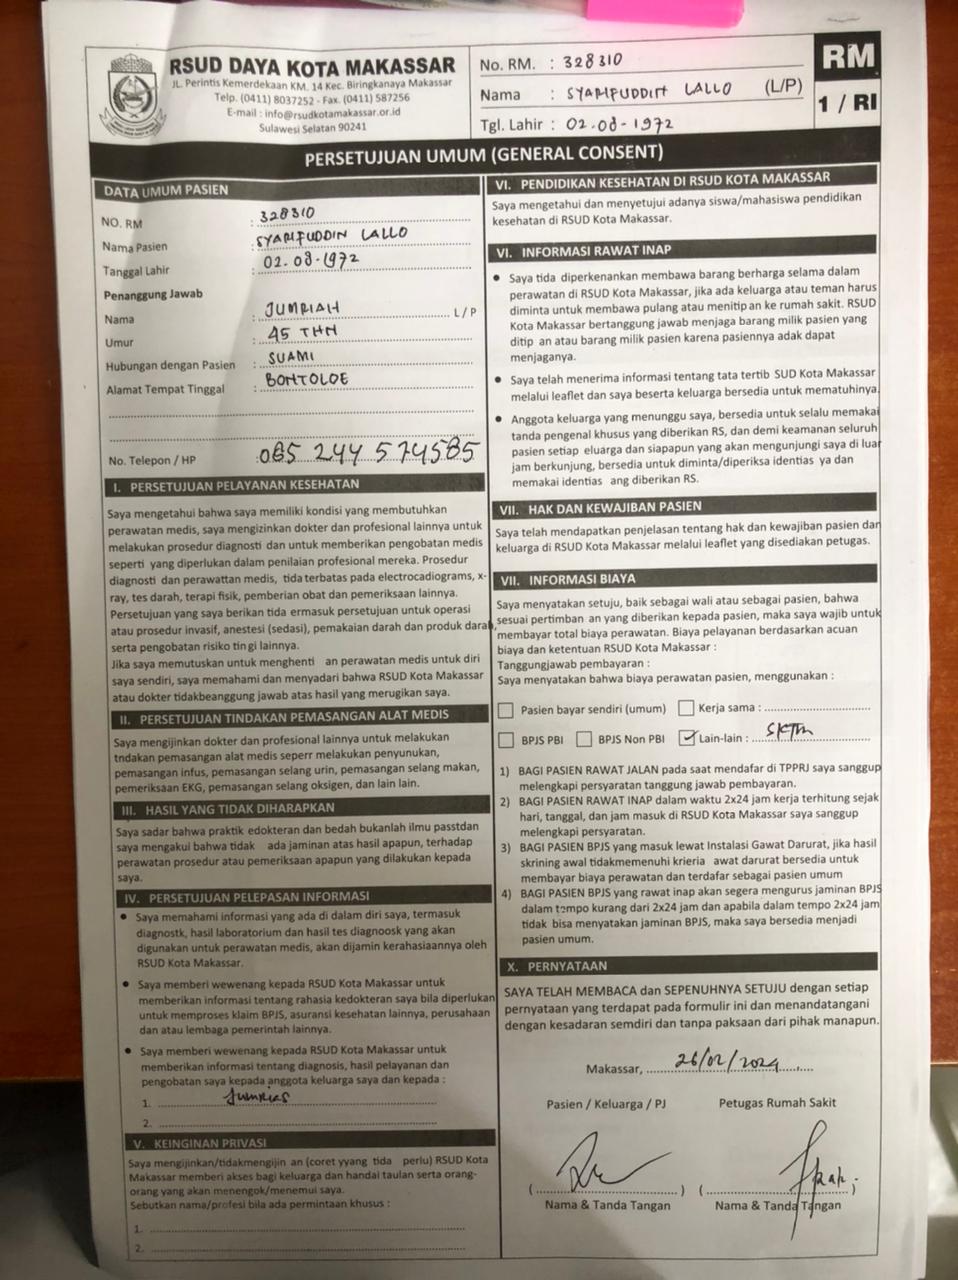 RSUD DAYA KOTA MAKASSAR
JL. Perintis Kemerdekaan KM. 14 Kec. Biringkanaya Makassar
Telp. (0411) 8037252 - Fax. (0411) 587256
E-mail : info@rsudkotamakassar.or.id
Sulawesi Selatan 90241
No. RM. : 328310
Nama : SYARIFUDDIN LALLO (L/P)
Tgl. Lahir : 02-08-1972
RM
1 / RI
PERSETUJUAN UMUM (GENERAL CONSENT)
DATA UMUM PASIEN
NO. RM : 328310
Nama Pasien : SYARIFUDDIN LALLO
Tanggal Lahir : 02.08-1972
Penanggung Jawab
Nama : JUMRIAH L / P
Umur : 45 THN
Hubungan dengan Pasien : SUAMI
Alamat Tempat Tinggal : BONTOLOE
No. Telepon / HP : 085 244 574585
I. PERSETUJUAN PELAYANAN KESEHATAN
Saya mengetahui bahwa saya memiliki kondisi yang membutuhkan
perawatan medis, saya mengizinkan dokter dan profesional lainnya untuk
melakukan prosedur diagnosti dan untuk memberikan pengobatan medis
seperti yang diperlukan dalam penilaian profesional mereka. Prosedur
diagnosti dan perawattan medis, tida terbatas pada electrocadiograms, x-
ray, tes darah, terapi fisik, pemberian obat dan pemeriksaan lainnya.
Persetujuan yang saya berikan tida ermasuk persetujuan untuk operasi
atau prosedur invasif, anestesi (sedasi), pemakaian darah dan produk darah,
serta pengobatan risiko tin gi lainnya.
Jika saya memutuskan untuk menghenti an perawatan medis untuk diri
saya sendiri, saya memahami dan menyadari bahwa RSUD Kota Makassar
atau dokter tidakbeanggung jawab atas hasil yang merugikan saya.
II. PERSETUJUAN TINDAKAN PEMASANGAN ALAT MEDIS
Saya mengijinkan dokter dan profesional lainnya untuk melakukan
tndakan pemasangan alat medis seperr melakukan penyunukan,
pemasangan infus, pemasangan selang urin, pemasangan selang makan,
pemeriksaan EKG, pemasangan selang oksigen, dan lain lain.
III. HASIL YANG TIDAK DIHARAPKAN
Saya sadar bahwa praktik edokteran dan bedah bukanlah ilmu passtdan
saya mengakui bahwa tidak ada jaminan atas hasil apapun, terhadap
perawatan prosedur atau pemeriksaan apapun yang dilakukan kepada
saya.
IV. PERSETUJUAN PELEPASAN INFORMASI
● Saya memahami informasi yang ada di dalam diri saya, termasuk
diagnostk, hasil laboratorium dan hasil tes diagnoosk yang akan
digunakan untuk perawatan medis, akan dijamin kerahasiaannya oleh
RSUD Kota Makassar.
● Saya memberi wewenang kepada RSUD Kota Makassar untuk
memberikan informasi tentang rahasia kedokteran saya bila diperlukan
untuk memproses klaim BPJS, asuransi kesehatan lainnya, perusahaan
dan atau lembaga pemerintah lainnya.
● Saya memberi wewenang kepada RSUD Kota Makassar untuk
memberikan informasi tentang diagnosis, hasil pelayanan dan
pengobatan saya kepada anggota keluarga saya dan kepada :
1. Jumrias
2.
V. KEINGINAN PRIVASI
Saya mengijinkan/tidakmengijin an (coret yyang tida perlu) RSUD Kota
Makassar memberi akses bagi keluarga dan handai taulan serta orang-
orang yang akan menengok/menemui saya.
Sebutkan nama/profesi bila ada permintaan khusus :
1.
2.
VI. PENDIDIKAN KESEHATAN DI RSUD KOTA MAKASSAR
Saya mengetahui dan menyetujui adanya siswa/mahasiswa pendidikan
kesehatan di RSUD Kota Makassar.
VI. INFORMASI RAWAT INAP
● Saya tida diperkenankan membawa barang berharga selama dalam
perawatan di RSUD Kota Makassar, jika ada keluarga atau teman harus
diminta untuk membawa pulang atau menitip an ke rumah sakit. RSUD
Kota Makassar bertanggung jawab menjaga barang milik pasien yang
ditip an atau barang milik pasien karena pasiennya adak dapat
menjaganya.
● Saya telah menerima informasi tentang tata tertib SUD Kota Makassar
melalui leaflet dan saya beserta keluarga bersedia untuk mematuhinya.
● Anggota keluarga yang menunggu saya, bersedia untuk selalu memakai
tanda pengenal khusus yang diberikan RS, dan demi keamanan seluruh
pasien setiap eluarga dan siapapun yang akan mengunjungi saya di luar
jam berkunjung, bersedia untuk diminta/diperiksa identias ya dan
memakai identias ang diberikan RS.
VII. HAK DAN KEWAJIBAN PASIEN
Saya telah mendapatkan penjelasan tentang hak dan kewajiban pasien dan
keluarga di RSUD Kota Makassar melalui leaflet yang disediakan petugas.
VII. INFORMASI BIAYA
Saya menyatakan setuju, baik sebagai wali atau sebagai pasien, bahwa
sesuai pertimban an yang diberikan kepada pasien, maka saya wajib untuk
membayar total biaya perawatan. Biaya pelayanan berdasarkan acuan
biaya dan ketentuan RSUD Kota Makassar :
Tanggungjawab pembayaran :
Saya menyatakan bahwa biaya perawatan pasien, menggunakan :
Pasien bayar sendiri (umum) Kerja sama :
BPJS PBI BPJS Non PBI Lain-lain : SKTM
1) BAGI PASIEN RAWAT JALAN pada saat mendafar di TPPRJ saya sanggup
melengkapi persyaratan tanggung jawab pembayaran.
2) BAGI PASIEN RAWAT INAP dalam waktu 2x24 jam kerja terhitung sejak
hari, tanggal, dan jam masuk di RSUD Kota Makassar saya sanggup
melengkapi persyaratan.
3) BAGI PASIEN BPJS yang masuk lewat Instalasi Gawat Darurat, jika hasil
skrining awal tidakmemenuhi krieria awat darurat bersedia untuk
membayar biaya perawatan dan terdafar sebagai pasien umum
4) BAGI PASIEN BPJS yang rawat inap akan segera mengurus jaminan BPJS
dalam tempo kurang dari 2x24 jam dan apabila dalam tempo 2x24 jam
tidak bisa menyatakan jaminan BPJS, maka saya bersedia menjadi
pasien umum.
X. PERNYATAAN
SAYA TELAH MEMBACA dan SEPENUHNYA SETUJU dengan setiap
pernyataan yang terdapat pada formulir ini dan menandatangani
dengan kesadaran semdiri dan tanpa paksaan dari pihak manapun.
Makassar, 26/02/2024
Pasien / Keluarga / PJ Petugas Rumah Sakit
Nama & Tanda Tangan Nama & Tanda Tangan